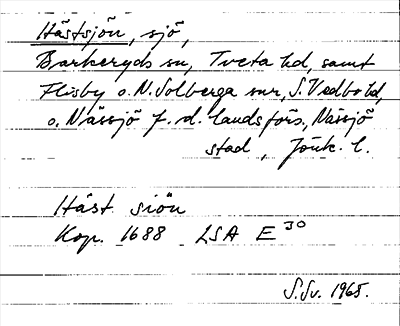 Hästsjön, sjö,
Barkeryds sn, Tveta hd, samt
Flisby o. N. Solberga snr, S. Vedbo hd,
o. Nässjö f. d. landsförs., Nässjö
stad, Jönk. l.
Häst siön
Kop. 1688 LSA E 30
S.Sv. 1965.